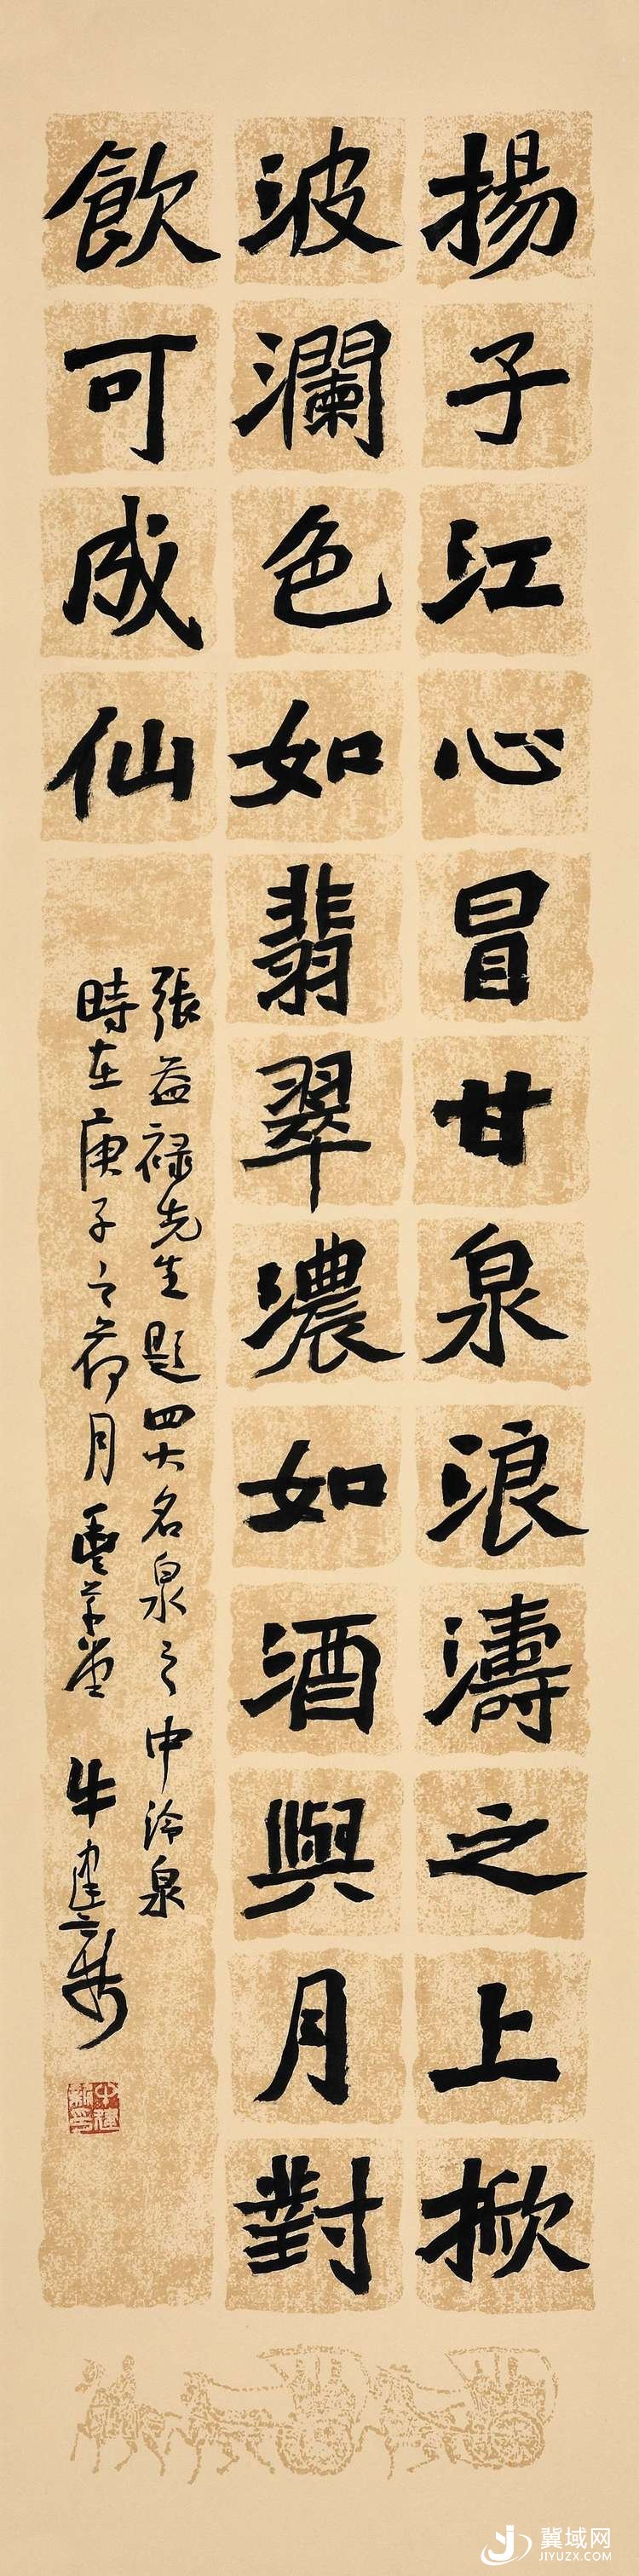 揚子江心冒甘泉浪濤之上掀
波瀾色如翡翠濃如酒與月對
飲可成仙
張益祿先生題四大名泉之中泠泉
時在庚子之荷月
牛建
冀域网
JIYUZX.COM